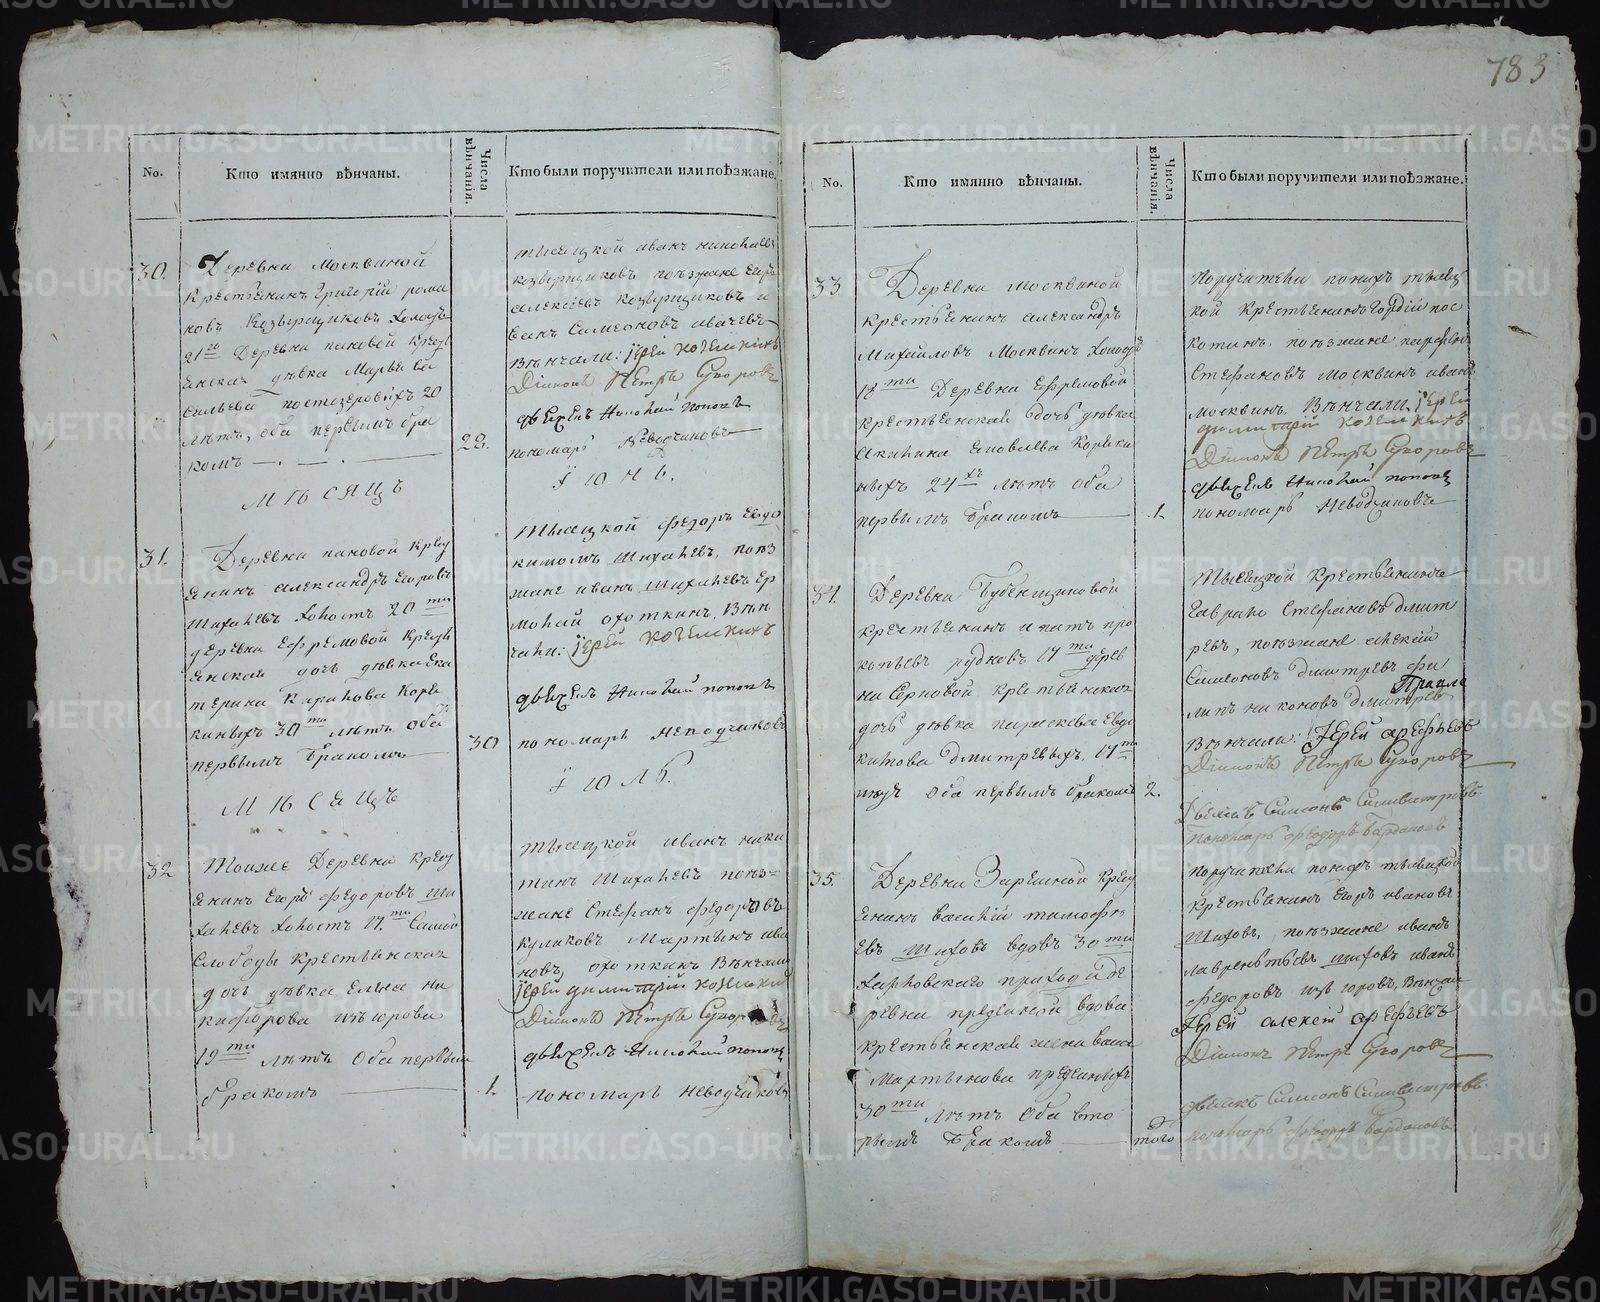 783
No.
Кто имянно вѣнчаны.
Числа вѣнчанія.
Кто были поручители или поѣзжане.
30.
Деревни Москвиной
крестьянинъ Григорій рома
новъ
21го Деревни пановой крест
янская дѣвка Марья ва
сильева 20
лѣтъ, оба первымъ бра
комъ
28.
тысяцкой иванъ николаев
поѣзжане Егоръ
алексіевъ и
Симеоновъ
Вѣнчали: іерей
Діаконъ Петръ Суворовъ
дьячекъ Николай поповъ
пономарь Неводчиковъ
Мѣсяцъ
іюнь.
31.
Деревни пановой крест
янинъ александръ Егоровъ
Шихалевъ холостъ 20ти
деревни Ефремовой крест
янская дочь дѣвка ека
терина Карпова
30ти лѣтъ оба
первымъ бракомъ
30
тысяцкой федоръ Евдо
кимовъ Шихалевъ, поѣз
жане иванъ Шихалевъ Ер
молай охоткинъ, Вѣн
чали: іерей
дьячекъ Николай поповъ
пономарь неводчиковъ
Мѣсяцъ
іюль.
32
Тоиже Деревни крест
янинъ Егоръ федоровъ Ши
халевъ холостъ 17ти Самой
Слободы крестьянская
дочь дѣвка Елена ни
кифорова
19ти лѣтъ Оба первым
бракомъ
1.
тысяцкой иванъ ники
тинъ Шихалевъ поѣз=
жане Стефанъ федоровъ
куликовъ Мартынъ ива
новъ охоткинъ Вѣнчали
іерей димитрій
Діаконъ Петръ Суворовъ
дьячекъ Николай поповъ
пономарь неводчиковъ
No.
Кто имянно вѣнчаны.
Числа вѣнчанія.
Кто были поручители или поѣзжане.
33.
Деревни москвиной
крестьянинъ александръ
Михайловъ Москвинъ холостъ
18ти Деревни Ефремовой
крестьянская дочь дѣвка
Акилина Яковлева
24хъ лѣтъ оба
первымъ бракомъ
1.
Поручители понихъ тысяц
кой крестьянинъ
поѣзжане парфенъ
Стефановъ москвинъ иванъ
москвинъ, Вѣнчали, іерей
димитрій
Діаконъ Петръ Суворовъ
дьячекъ Николай поповъ
пономарь Неводчиковъ
34.
Деревни Бубенщиковой
крестьянинъ ипатъ про
копьевъ рудновъ 17ти дерев
ни Серковой крестьянская
дочь дѣвка параскева Евдо
кимова дмитревыхъ, 17ти
оба первымъ бракомъ
2.
Тысяцкой крестьянинъ
гаврило Стефановъ дмит
ревъ, поѣзжане алексій
Симеоновъ дмитревъ фи
липъ никоновъ дмитревъ
Вѣнчали: Іерей арефьевъ
Діаконъ Петръ Суворовъ
Дьячекъ Симеонъ Силивестровъ
Пономарь Феодоръ
35.
Деревни Зырянской крест
янинъ василій тимофѣ
евъ Шиховъ вдовъ 30ти
прихода де
ревни вдова
крестьянская жена
Мартынова
30ти лѣтъ Оба вто
рымъ бракомъ
того
Поручители понихъ тысяцкой
крестьянинъ Егоръ ивановъ
Шиховъ, поѣзжане иванъ
лаврентьевъ шиховъ иванъ
федоровъ Вѣнчал
Іерей алексій арефьевъ
Діаконъ Петръ Суворовъ
дьячекъ Симеонъ Силивестровъ
пономарь Феодоръ
METRIKI.GASO-URAL.RU